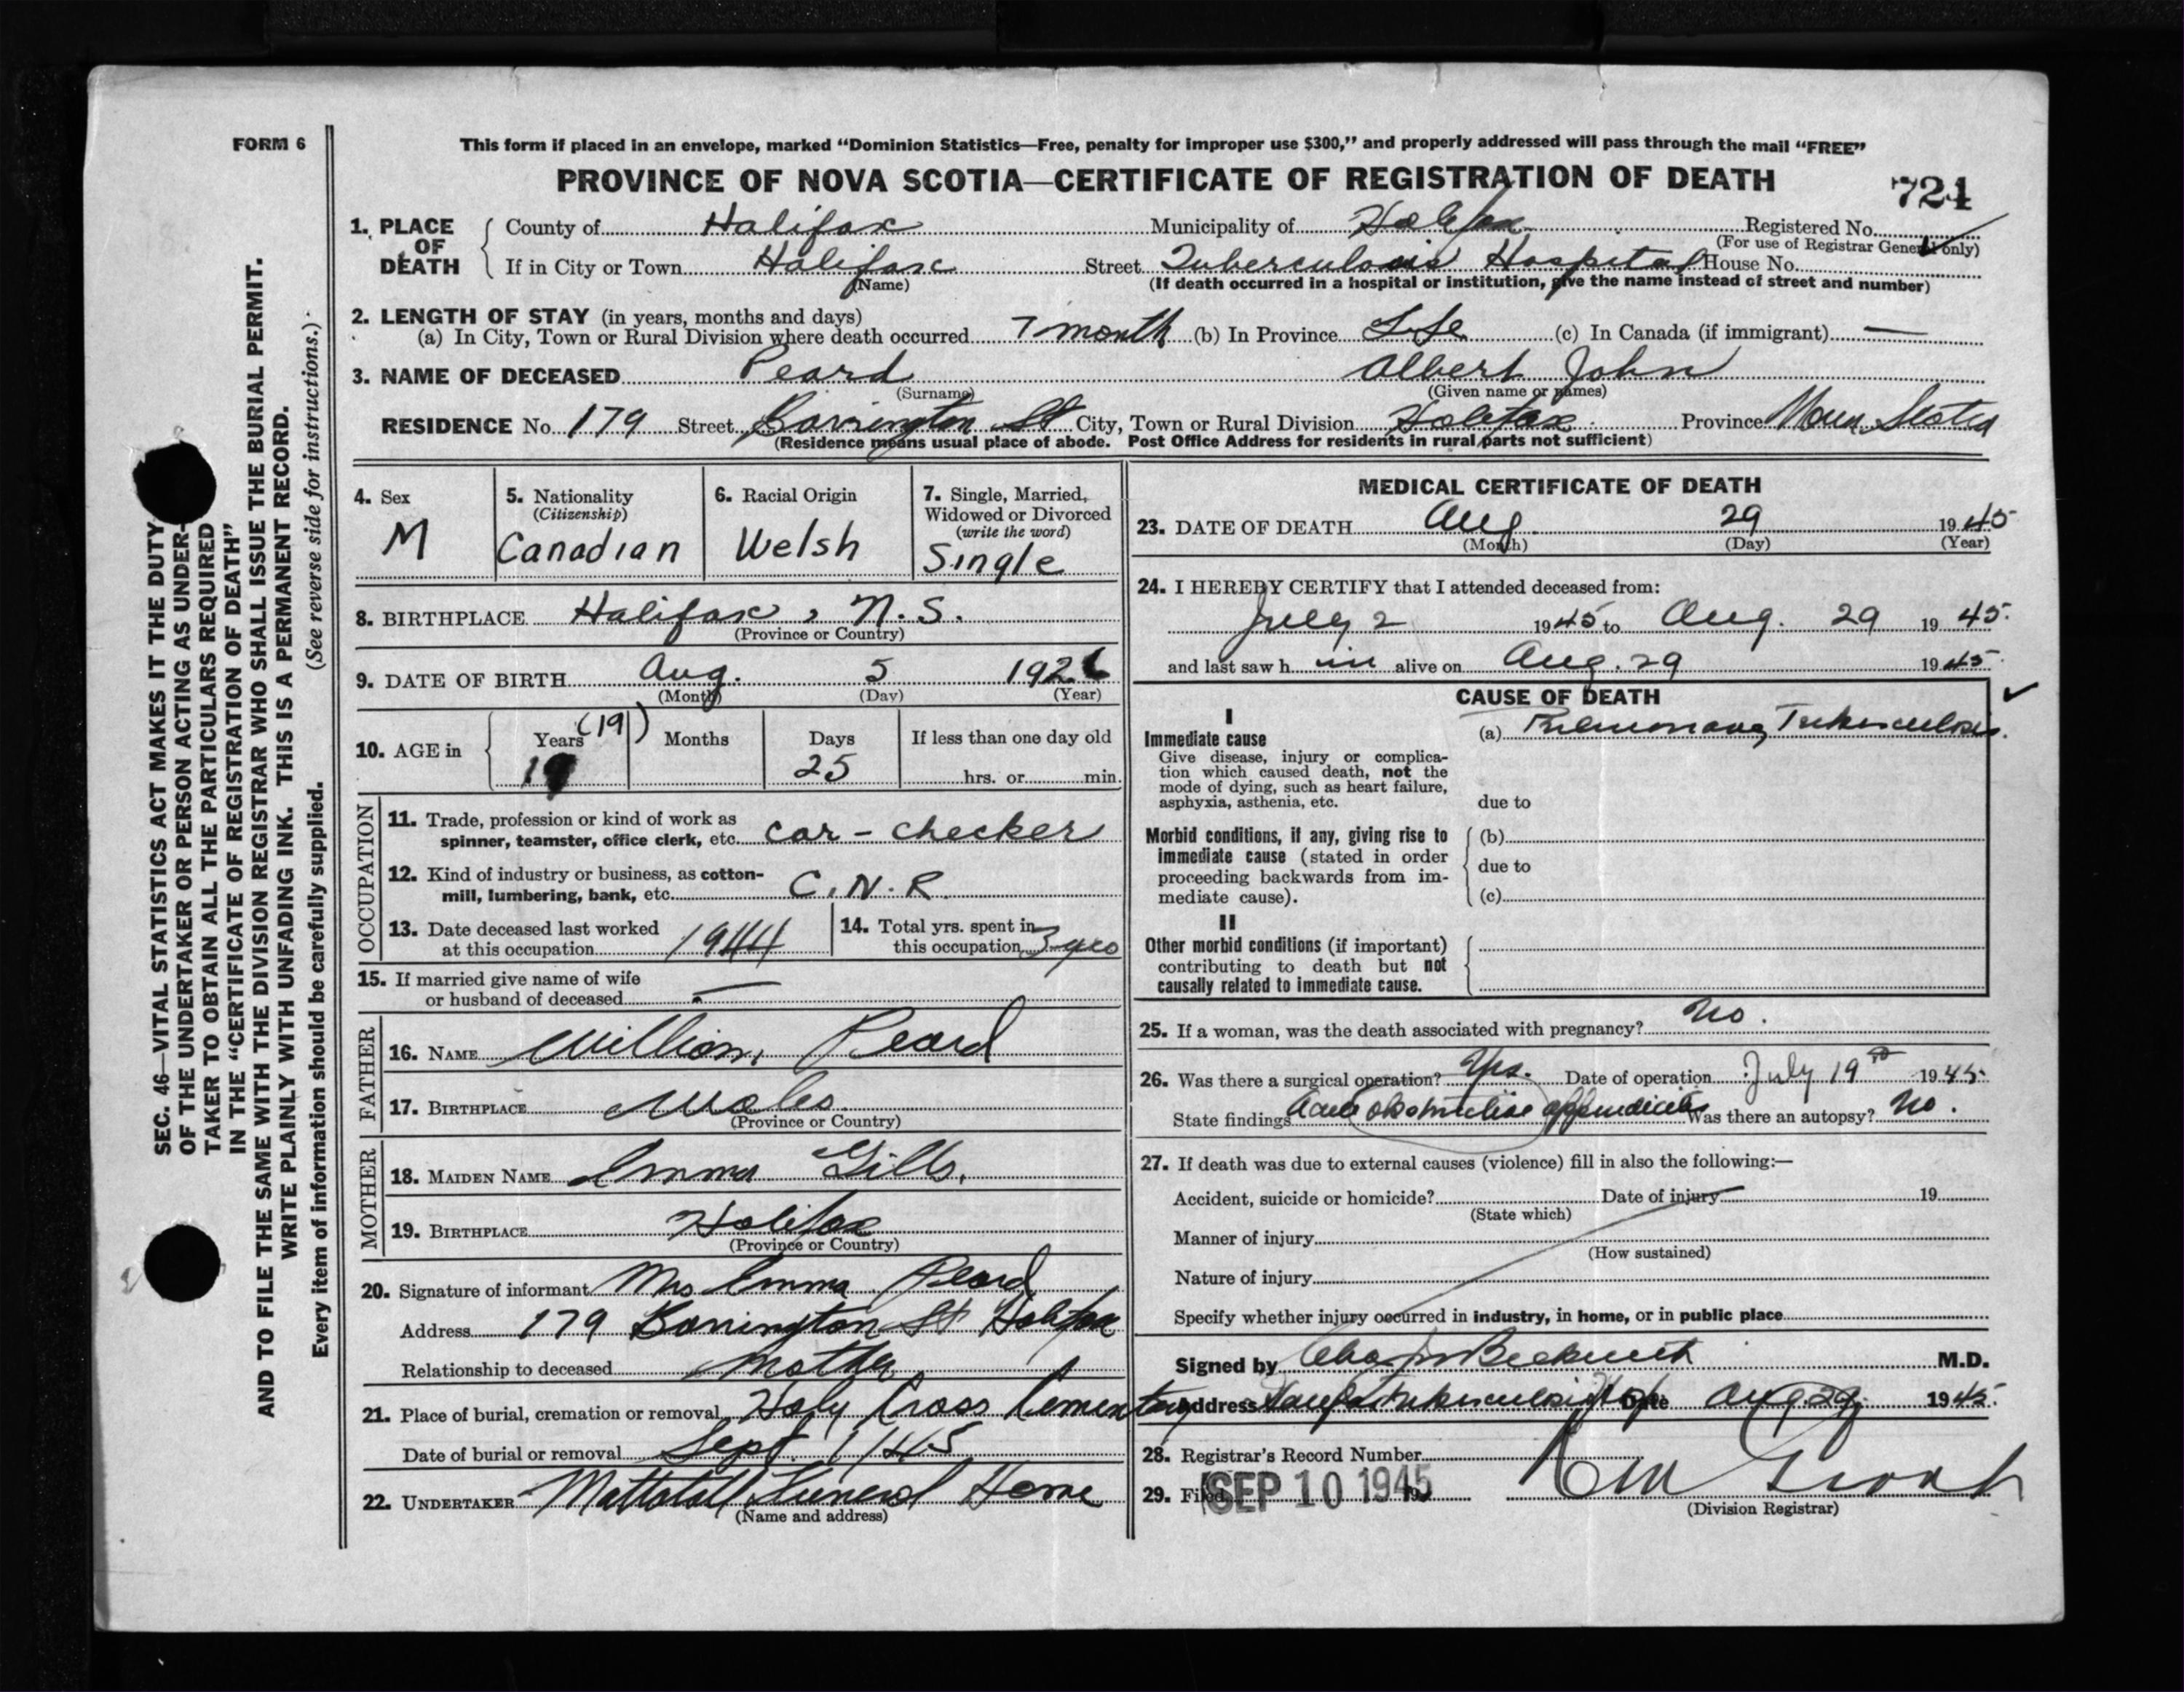 FORM 6
This form if placed in an envelope, marked “Dominion Statistics—Free, penalty for improper use $300,” and properly addressed will pass through the mail “FREE”
PROVINCE OF NOVA SCOTIA—CERTIFICATE OF REGISTRATION OF DEATH
724
SEC. 46—VITAL STATISTICS ACT MAKES IT THE DUTY
OF THE UNDERTAKER OR PERSON ACTING AS UNDER-
TAKER TO OBTAIN ALL THE PARTICULARS REQUIRED
IN THE “CERTIFICATE OF REGISTRATION OF DEATH”
AND TO FILE THE SAME WITH THE DIVISION REGISTRAR WHO SHALL ISSUE THE BURIAL PERMIT.
WRITE PLAINLY WITH UNFADING INK. THIS IS A PERMANENT RECORD.
Every item of information should be carefully supplied. (See reverse side for instructions.)
1. PLACE OF DEATH
County of Halifax Municipality of Halifax Registered No.
(For use of Registrar General only)
If in City or Town Halifax Street Tuberculosis Hospital House No.
(Name) (If death occurred in a hospital or institution, give the name instead of street and number)
2. LENGTH OF STAY (in years, months and days)
(a) In City, Town or Rural Division where death occurred 7 month (b) In Province Life (c) In Canada (if immigrant) —
3. NAME OF DECEASED Peard Albert John
(Surname) (Given name or names)
RESIDENCE No. 179 Street Barrington St City, Town or Rural Division Halifax Province Nova Scotia
(Residence means usual place of abode. Post Office Address for residents in rural parts not sufficient)
4. Sex
M
5. Nationality
(Citizenship)
Canadian
6. Racial Origin
Welsh
7. Single, Married,
Widowed or Divorced
(write the word)
Single
8. BIRTHPLACE Halifax, N.S.
(Province or Country)
9. DATE OF BIRTH Aug. 5 1926
(Month) (Day) (Year)
10. AGE in
Years (19) Months Days If less than one day old
19 25 hrs. or min.
OCCUPATION
11. Trade, profession or kind of work as
spinner, teamster, office clerk, etc. car-checker
12. Kind of industry or business, as cotton-
mill, lumbering, bank, etc. C.N.R
13. Date deceased last worked
at this occupation 1944
14. Total yrs. spent in
this occupation 3 yrs
15. If married give name of wife
or husband of deceased —
FATHER
16. NAME William Peard
17. BIRTHPLACE Wales
(Province or Country)
MOTHER
18. MAIDEN NAME Emma Gills.
19. BIRTHPLACE Halifax
(Province or Country)
20. Signature of informant Mrs Emma Peard
Address 179 Barrington St Halifax
Relationship to deceased Mother
21. Place of burial, cremation or removal Holy Cross Cementary
Date of burial or removal Sept 1/45
22. UNDERTAKER Mattatall Funeral Home
(Name and address)
MEDICAL CERTIFICATE OF DEATH
23. DATE OF DEATH Aug 29 1945
(Month) (Day) (Year)
24. I HEREBY CERTIFY that I attended deceased from:
July 2 1945 to Aug. 29 1945.
and last saw h im alive on Aug. 29 1945.
CAUSE OF DEATH
I
Immediate cause
Give disease, injury or complica-
tion which caused death, not the
mode of dying, such as heart failure,
asphyxia, asthenia, etc.
(a) Pulmonary Tuberculosis.
due to
Morbid conditions, if any, giving rise to
immediate cause (stated in order
proceeding backwards from im-
mediate cause).
(b)
due to
(c)
II
Other morbid conditions (if important)
contributing to death but not
causally related to immediate cause.
25. If a woman, was the death associated with pregnancy? No.
26. Was there a surgical operation? Yes. Date of operation July 19th 1945
State findings Acute obstructive appendicitis Was there an autopsy? No.
27. If death was due to external causes (violence) fill in also the following:—
Accident, suicide or homicide? Date of injury 19
(State which)
Manner of injury
(How sustained)
Nature of injury
Specify whether injury occurred in industry, in home, or in public place
Signed by Beckwith M.D.
Address Tuberculosis Hosp Date Aug. 29 1945.
28. Registrar's Record Number
29. Filed SEP 10 1945
(Division Registrar)